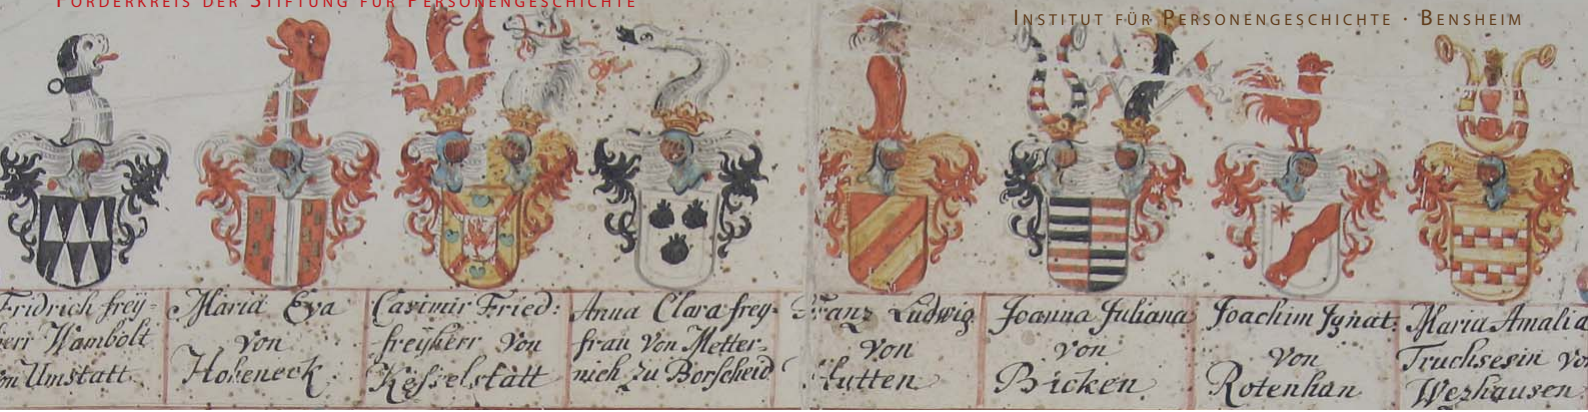 FÖRDERKREIS DER STIFTUNG FÜR PERSONENGESCHICHTE
INSTITUT FÜR PERSONENGESCHICHTE · BENSHEIM
Fridrich frey-
herr Wambolt
von Umstatt
Maria Eva
von
Hoheneck
Casimir Fried:
freyherr von
Kesselstatt
Anna Clara frey-
frau von Metter-
nich zu Borscheid
Franz Ludwig
von
Hutten
Joanna Juliana
von
Bicken
Joachim Ignat:
von
Rotenhan
Maria Amalia
Truchsesin vo
Wezhausen